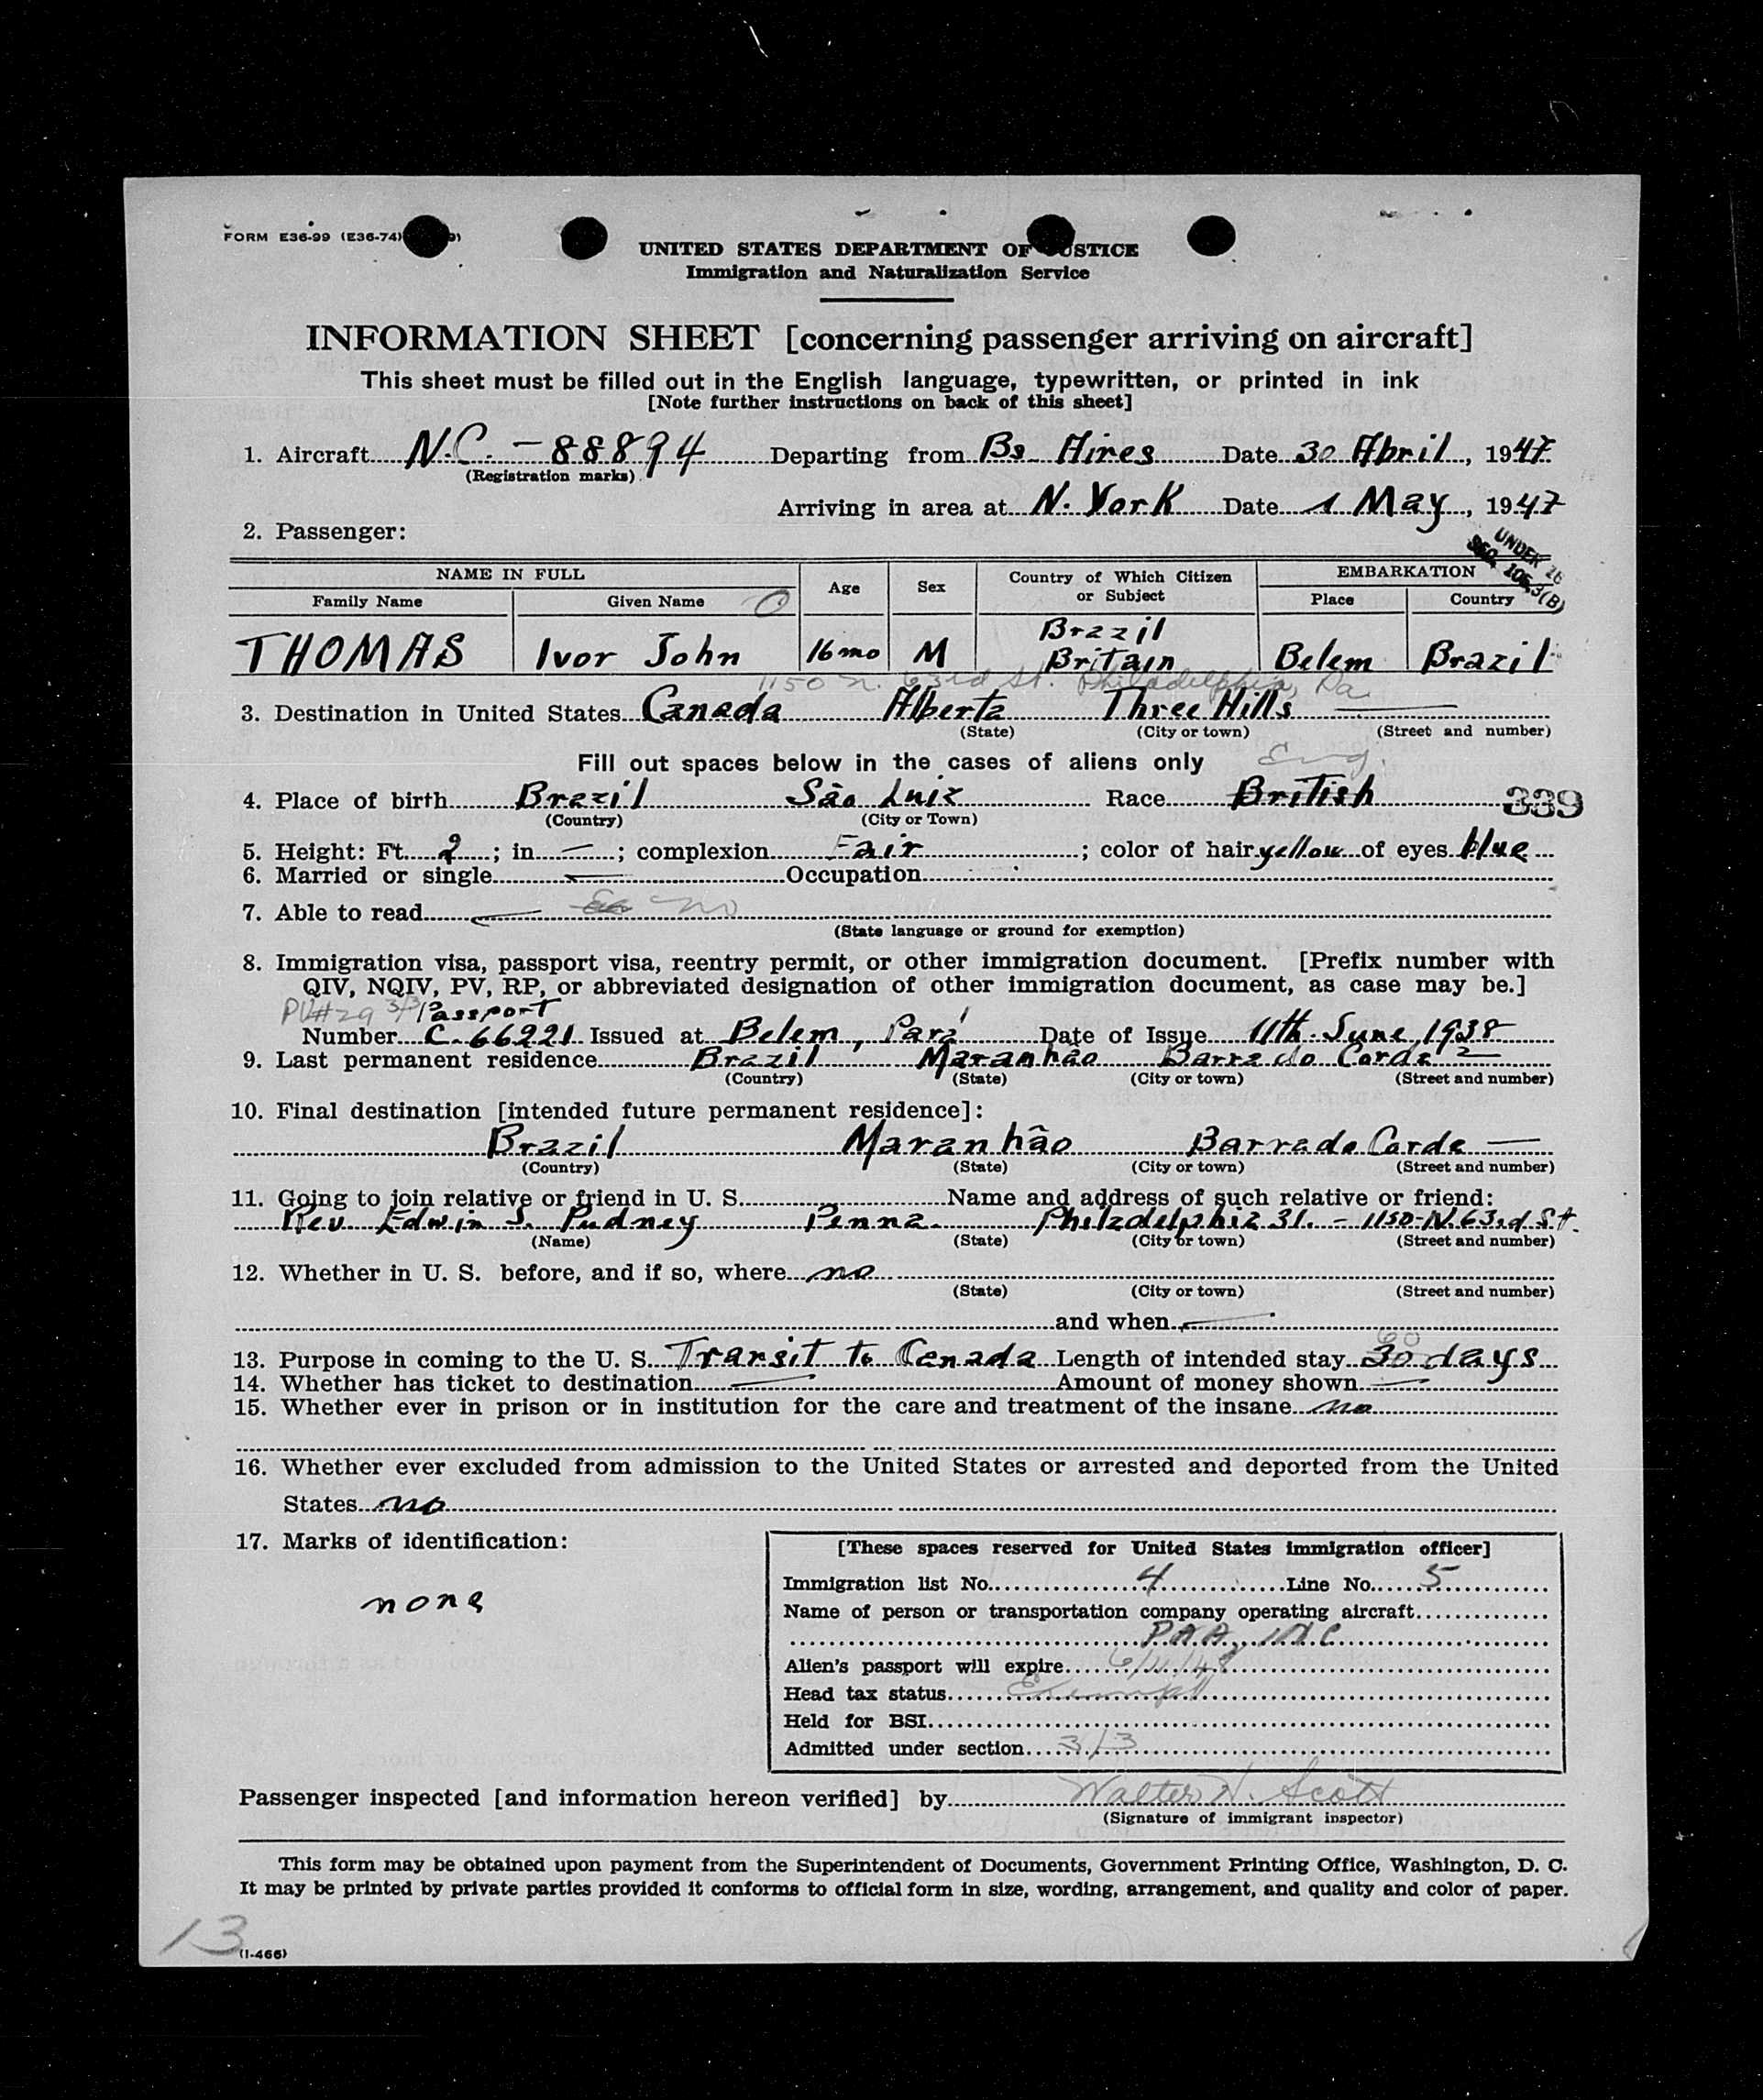 FORM E36-99 (E36-74)
UNITED STATES DEPARTMENT OF JUSTICE
Immigration and Naturalization Service
INFORMATION SHEET [concerning passenger arriving on aircraft]
This sheet must be filled out in the English language, typewritten, or printed in ink
[Note further instructions on back of this sheet]
1. Aircraft N.C. - 88894 Departing from Bs. Aires Date 30 Abril, 1947
(Registration marks)
Arriving in area at N. York Date 1 May, 1947
2. Passenger:
UNDER 16
SEC. 105.3(B)
NAME IN FULL Age Sex Country of Which Citizen or Subject EMBARKATION
Family Name Given Name Place Country
Brazil
THOMAS Ivor John 16 mo M Britain Belem Brazil
1150 N. 63rd St. Philadelphia, Pa.
3. Destination in United States Canada Alberta Three Hills —
(State) (City or town) (Street and number)
Fill out spaces below in the cases of aliens only Eng.
4. Place of birth Brazil São Luiz Race British 339
(Country) (City or Town)
5. Height: Ft. 2; in. —; complexion Fair; color of hair yellow of eyes blue
6. Married or single — Occupation
7. Able to read — no
(State language or ground for exemption)
8. Immigration visa, passport visa, reentry permit, or other immigration document. [Prefix number with
QIV, NQIV, PV, RP, or abbreviated designation of other immigration document, as case may be.]
PV#29 3/3 Passport
Number C. 66221 Issued at Belem, Pará Date of Issue 11th. June, 1938
9. Last permanent residence Brazil Maranhão Barra do Corda —
(Country) (State) (City or town) (Street and number)
10. Final destination [intended future permanent residence]:
Brazil Maranhão Barra do Corda —
(Country) (State) (City or town) (Street and number)
11. Going to join relative or friend in U. S. Name and address of such relative or friend:
Rev Edwin S. Pudney Penna. Philadelphia 31. - 1150-N. 63rd St.
(Name) (State) (City or town) (Street and number)
12. Whether in U. S. before, and if so, where no
(State) (City or town) (Street and number)
and when —
60
13. Purpose in coming to the U. S. Transit to Canada Length of intended stay 30 days
14. Whether has ticket to destination — Amount of money shown —
15. Whether ever in prison or in institution for the care and treatment of the insane no
16. Whether ever excluded from admission to the United States or arrested and deported from the United
States no
17. Marks of identification:
none
[These spaces reserved for United States immigration officer]
Immigration list No. 4 Line No. 5
Name of person or transportation company operating aircraft
PAA, INC
Alien's passport will expire 6/11/48
Head tax status Exempt
Held for BSI
Admitted under section 3/3
Passenger inspected [and information hereon verified] by Walter N. Scott
(Signature of immigrant inspector)
This form may be obtained upon payment from the Superintendent of Documents, Government Printing Office, Washington, D. C.
It may be printed by private parties provided it conforms to official form in size, wording, arrangement, and quality and color of paper.
13
(I-466)